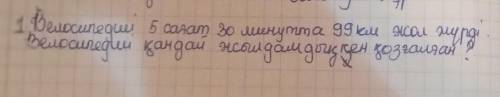 1. Велосипедші 5 сағат 30 минутта 99 км жол жүрді.
Велосипедші қандай жылдамдықпен қозғалған?